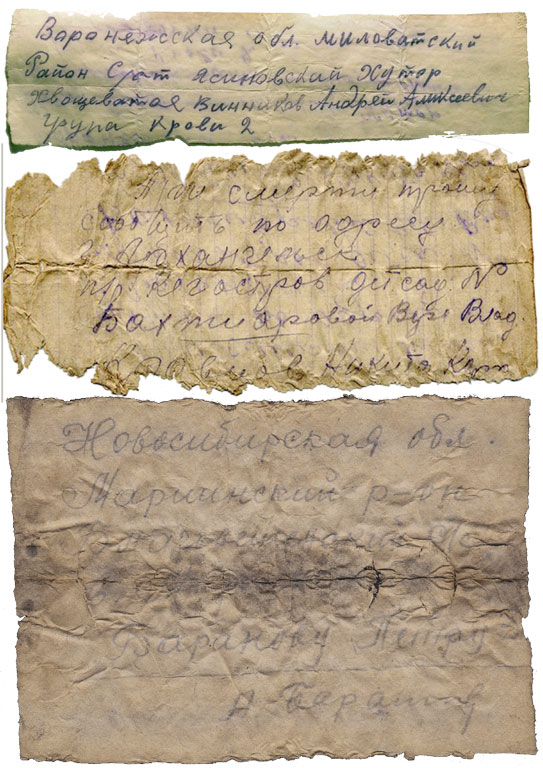 Варанежсская обл. миловатский
Район С/сот ясиновский Хутор
Хвощеватая Винников Андрей Аликсеевич
група крови 2
При смерти прошу
сообщить по адресу
г Архангельск
п/о Кегостров детсад N
Бахтиаровой Вере Влад.
Никита
Новосибирская обл.
Мариинский р-он
Баринову Петру
А.